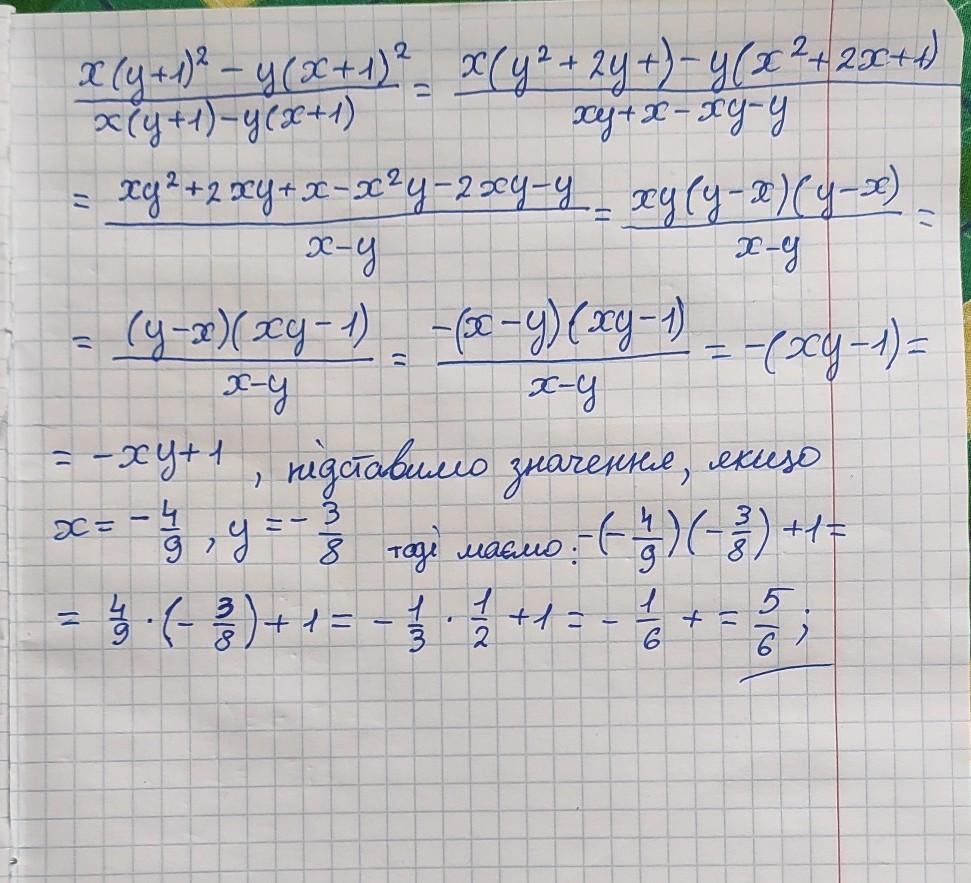 x(y+1)² − y(x+1)² / x(y+1)−y(x+1) = x(y² + 2y+) − y(x² + 2x+1) / xy+x−xy−y
= xy²+2xy+x−x²y−2xy−y / x−y = xy(y−x)(y−x) / x−y =
= (y−x)(xy−1) / x−y = −(x−y)(xy−1) / x−y = −(xy−1) =
= −xy+1 , підставимо значення, якщо
x = −4/9 , y = −3/8 тоді маємо: −(−4/9)(−3/8) +1 =
= 4/9 · (−3/8) + 1 = −1/3 · 1/2 +1 = −1/6 + = 5/6 ;